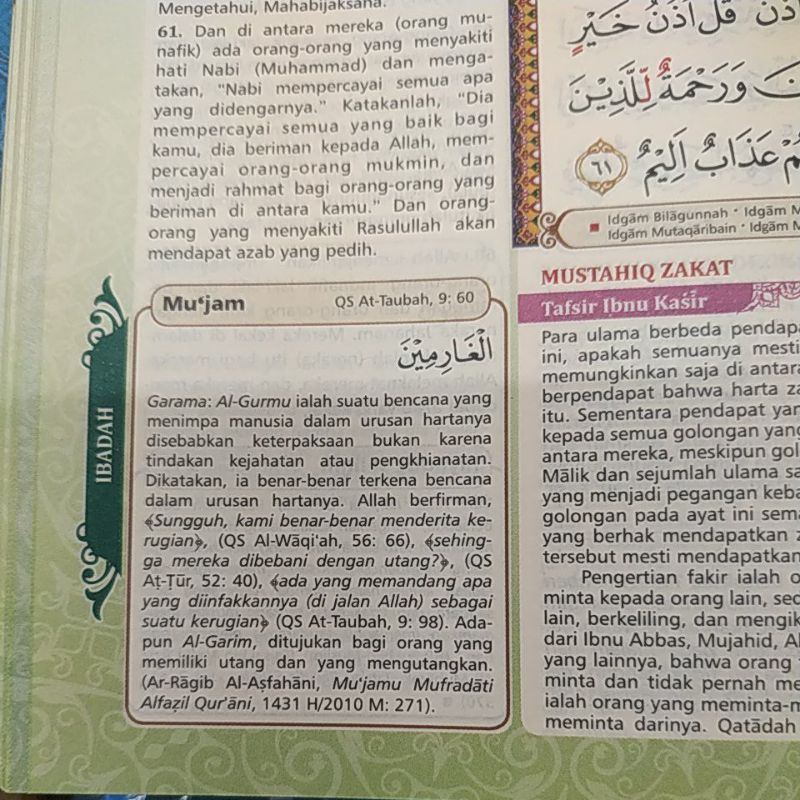 Mengetahui, Mahabijaksana.
61. Dan di antara mereka (orang mu-
nafik) ada orang-orang yang menyakiti
hati Nabi (Muhammad) dan menga-
takan, “Nabi mempercayai semua apa
yang didengarnya.” Katakanlah, “Dia
mempercayai semua yang baik bagi
kamu, dia beriman kepada Allah, mem-
percayai orang-orang mukmin, dan
menjadi rahmat bagi orang-orang yang
beriman di antara kamu.” Dan orang-
orang yang menyakiti Rasulullah akan
mendapat azab yang pedih.
IBADAH
Mu‘jam QS At-Taubah, 9: 60
الْغَارِمِيْنَ
Garama: Al-Gurmu ialah suatu bencana yang
menimpa manusia dalam urusan hartanya
disebabkan keterpaksaan bukan karena
tindakan kejahatan atau pengkhianatan.
Dikatakan, ia benar-benar terkena bencana
dalam urusan hartanya. Allah berfirman,
﴾Sungguh, kami benar-benar menderita ke-
rugian﴿, (QS Al-Wāqi‘ah, 56: 66), ﴾sehing-
ga mereka dibebani dengan utang?﴿, (QS
Aṭ-Ṭūr, 52: 40), ﴾ada yang memandang apa
yang diinfakkannya (di jalan Allah) sebagai
suatu kerugian﴿ (QS At-Taubah, 9: 98). Ada-
pun Al-Garim, ditujukan bagi orang yang
memiliki utang dan yang mengutangkan.
(Ar-Rāgib Al-Aṣfahāni, Mu‘jamu Mufradāti
Alfaẓil Qur'āni, 1431 H/2010 M: 271).
قُلْ اُذُنُ خَيْرٍ
وَرَحْمَةٌ لِّلَّذِيْنَ
عَذَابٌ اَلِيْمٌ ٦١
Idgām Bilāgunnah • Idgām
Idgām Mutaqāribain • Idgām
MUSTAHIQ ZAKAT
Tafsir Ibnu Kaṡir
Para ulama berbeda
ini, apakah semuanya mesti
memungkinkan saja di antara
berpendapat bahwa harta
itu. Sementara pendapat
kepada semua golongan
antara mereka, meskipun
Mālik dan sejumlah ulama
yang menjadi pegangan
golongan pada ayat ini
yang berhak mendapatkan
tersebut mesti mendapatkan
Pengertian fakir ialah
minta kepada orang lain,
lain, berkeliling, dan
dari Ibnu Abbas, Mujahid,
yang lainnya, bahwa orang
minta dan tidak pernah
ialah orang yang
meminta darinya. Qatādah